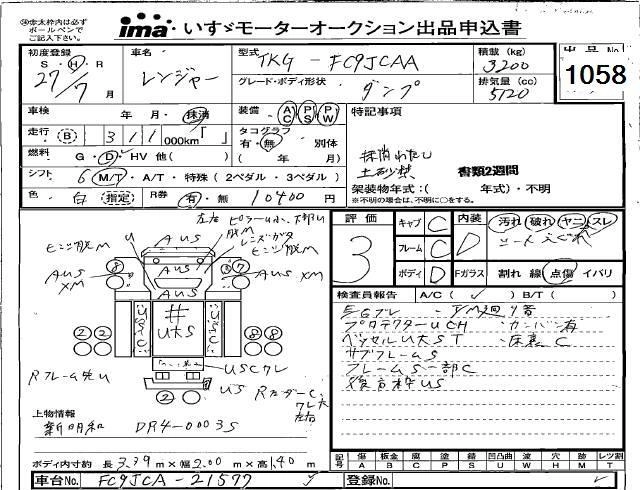 ※赤太枠内は必ず
ボールペンで
ご記入下さい。
ima いすゞモーターオークション出品申込書
出品No
1058
初度登録
S・H・R
27/7 月
車名
レンジャー
型式
TKG - FC9JCAA
積載 (kg)
3200
グレード・ボディ形状
ダンプ
排気量 (cc)
5120
車検 年 月・抹消
装備 AC PS PW
特記事項
走行 B 311 000km「 」
タコグラフ
有・無 別体
( 年 月)
抹消わたし
土砂禁
書類2週間
燃料 G・D・HV 他( )
シフト 6 M/T・A/T・特殊 (2ペダル・3ペダル)
架装物年式:( 年式)・不明
※不明の場合は、不明に○をする。
色 白 指定 R券 有・無 10400 円
左右
ヒンジ脱M
U
AUS
脱M
レンズガタ
ヒンジ脱M
AUS
AUS
XM
8
3
7
AUS
XM
AUS
USC
#
UtS
USC
2 2
8 8
USCワレ
US
2
評価
3
キャブ C
フレーム C
ボディ D
内装 D
汚れ 破れ ヤニ スレ
シートスぐれ
Fガラス 割れ 線 点傷 イバリ
検査員報告 A/C ( ✓ ) B/T ( )
プロテクターUCH
カンバン有
ベッセルUtST
床裏C
サブフレームS
フレームS一部C
後方枠US
上物情報
新明和 DR4-0003S
ボディ内寸約 長 3.39 m×幅 2.00 m×高 .40 m
記号 傷 A 板金 B 腐 C 塗 P 錆 S 凹凸曲 U 波 W 穴 H 欠 M レツ割 T
車台No. FC9JCA-21577
登録No.